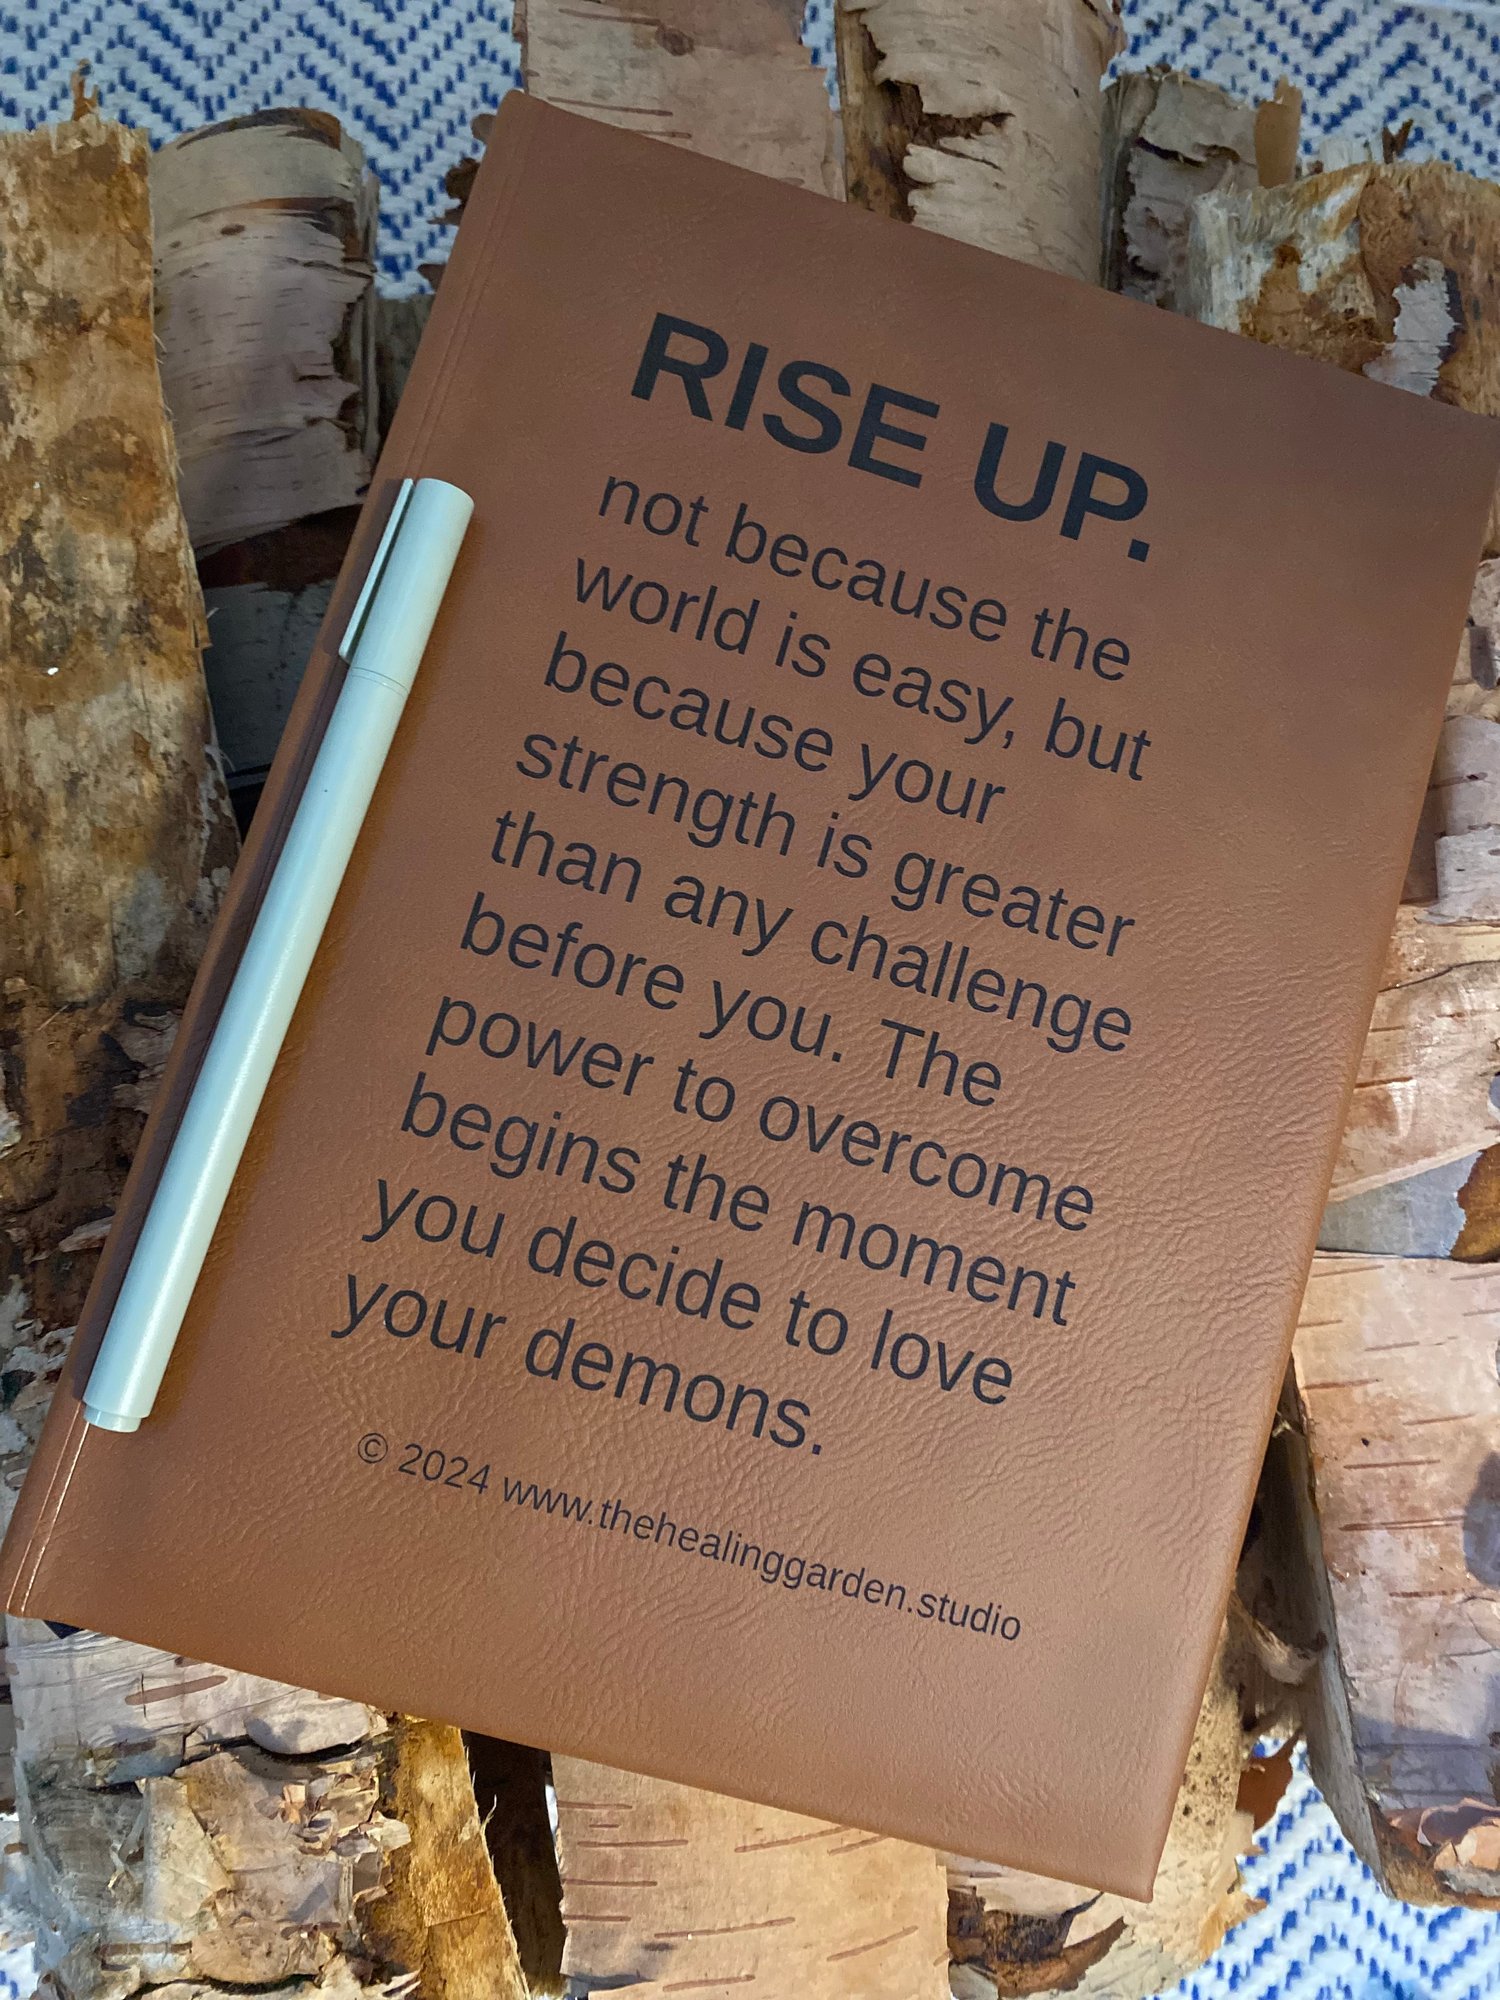 RISE UP.
not because the
world is easy, but
because your
strength is greater
than any challenge
before you. The
power to overcome
begins the moment
you decide to love
your demons.
© 2024 www.thehealinggarden.studio